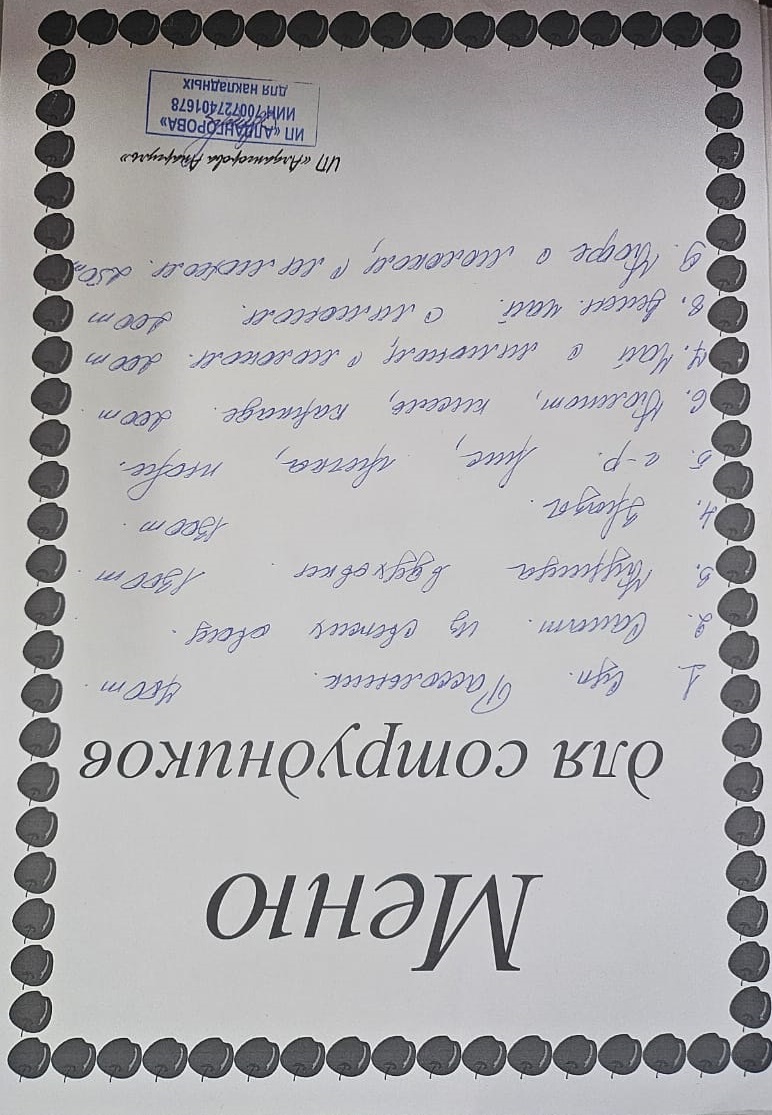 Меню
для сотрудников
1 Суп. Рассольник. 400 т.
2. Салат. из свежих овощ.
3. Курица в духовке. 1300 т.
4. Гренки. 1300 т.
5. г-р. рис, гречка, пюре.
6. Компот, кисель, каркаде. 200 т
7. Чай с лимоном, с молоком. 200 т
8. Зелен. чай. с лимоном. 200 т
9. Кофе с молоком, с лимоном. 250 т
ИП «Алдангорова
ИП «АЛДАНГОРОВА»
ИИН 700727401678
для накладных